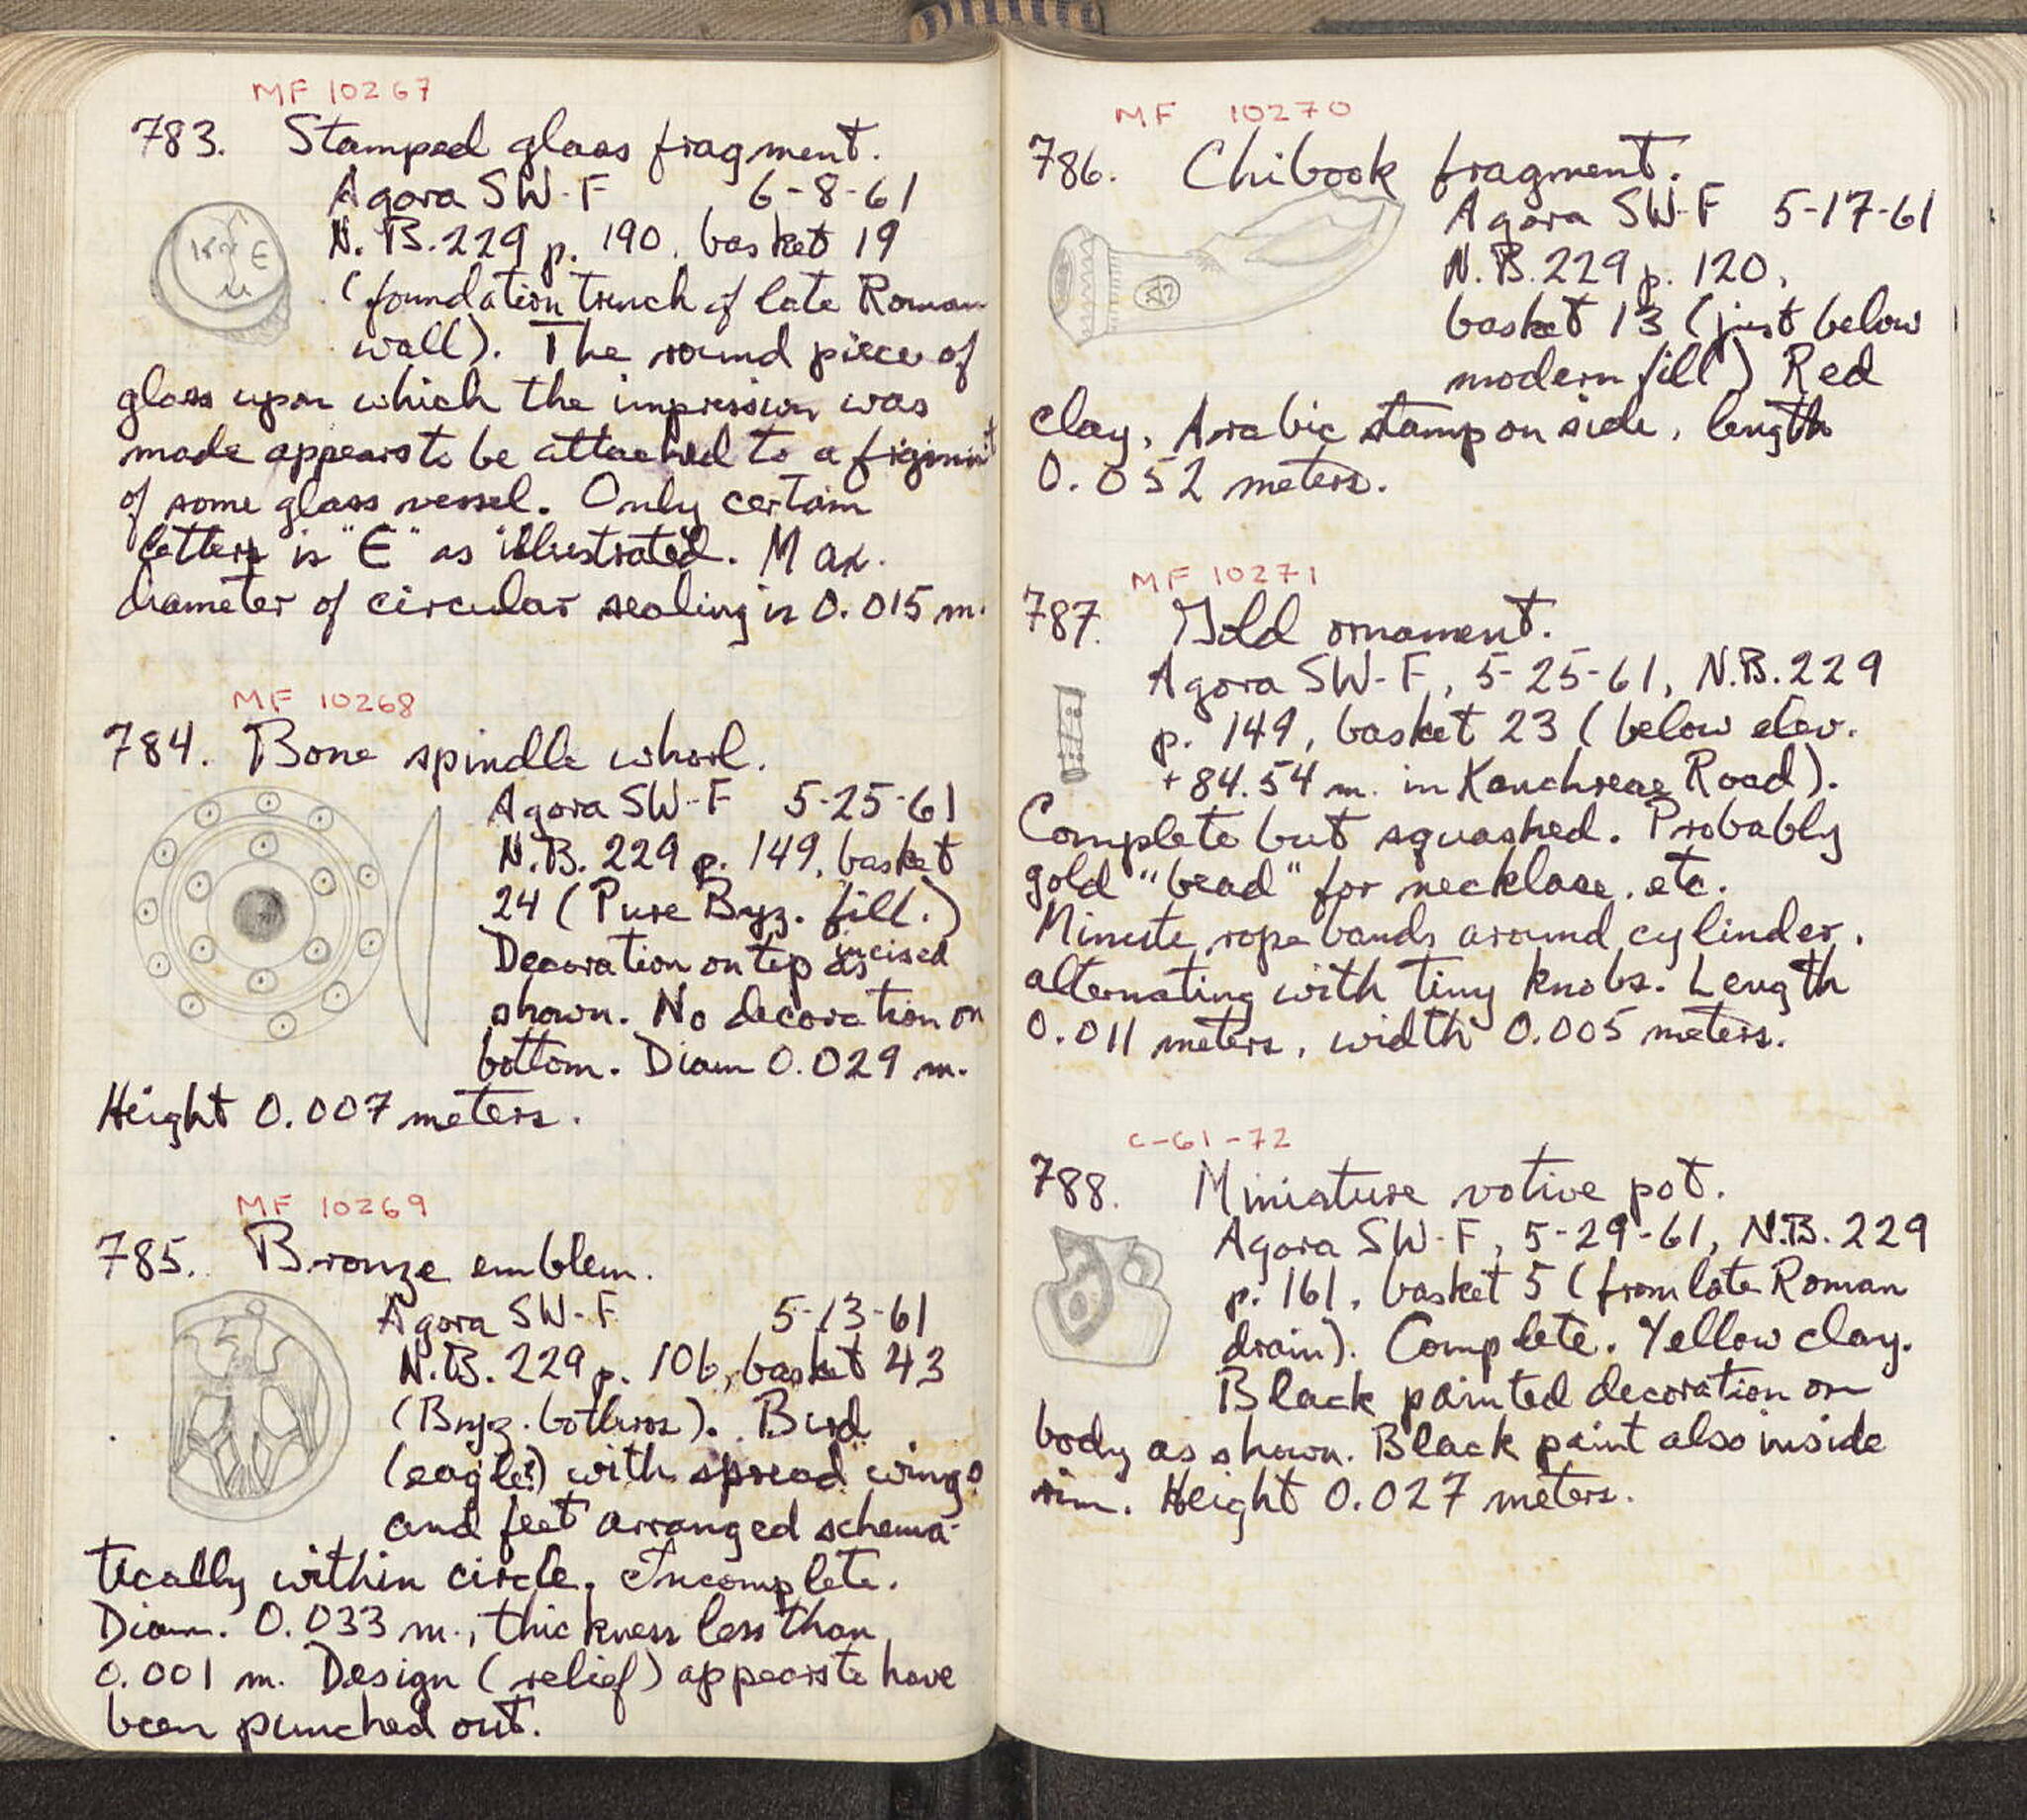 MF 10267
783. Stamped glass fragment.
Agora SW-F 6-8-61
N.B. 229 p. 190, basket 19
(foundation trench of late Roman
wall). The round piece of
glass upon which the impression was
made appears to be attached to a frigmint
of some glass vessel. Only certain
letters is "E" as illustrated. Max.
diameter of circular sealing is 0.015 m.
MF 10268
784. Bone spindle whorl.
Agora SW-F 5-25-61
N.B. 229 p. 149, basket
24 (Pure Byz. fill.)
Decoration on top incised as
shown. No decoration on
bottom. Diam 0.029 m.
Height 0.007 meters.
MF 10269
785. Bronze emblem.
Agora SW-F 5-13-61
N.B. 229 p. 106, basket 43
(Byz. bothros). Bird
(eagle?) with spread wings
and feet arranged schema-
tically within circle. Incomplete.
Diam. 0.033 m., thickness less than
0.001 m. Design (relief) appears to have
been punched out.
MF 10270
786. Chibook fragment.
Agora SW-F 5-17-61
N.B. 229 p. 120,
basket 13 (just below
modern fill) Red
clay, Arabic stamp on side, length
0.052 meters.
MF 10271
787. Gold ornament.
Agora SW-F, 5-25-61, N.B. 229
p. 149, basket 23 (below elev.
+84.54 m. in Kenchreae Road).
Complete but squashed. Probably
gold "bead" for necklace, etc.
Minute rope bands around cylinder,
alternating with tiny knobs. Length
0.011 meters, width 0.005 meters.
C-61-72
788. Miniature votive pot.
Agora SW-F, 5-29-61, N.B. 229
p. 161, basket 5 (from late Roman
drain). Complete. Yellow clay.
Black painted decoration on
body as shown. Black paint also inside
rim. Height 0.027 meters.